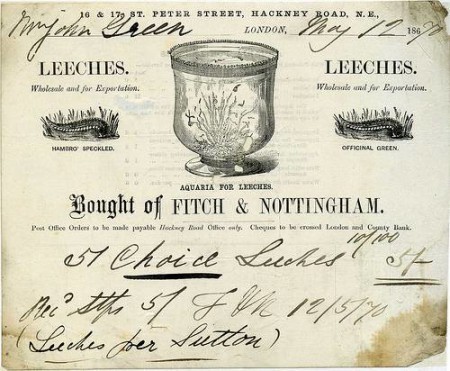 16 & 17, ST. PETER STREET, HACKNEY ROAD, N.E.,
John Green LONDON, May 12 1870
LEECHES. LEECHES.
Wholesale and for Exportation. Wholesale and for Exportation.
HAMBRO' SPECKLED. OFFICINAL GREEN.
AQUARIA FOR LEECHES.
Bought of FITCH & NOTTINGHAM.
Post Office Orders to be made payable Hackney Road Office only. Cheques to be crossed London and County Bank.
10/100
51 Choice Leeches 5/-
Recd Stps 5/ F & N 12/5/70
(Leeches per Sutton)